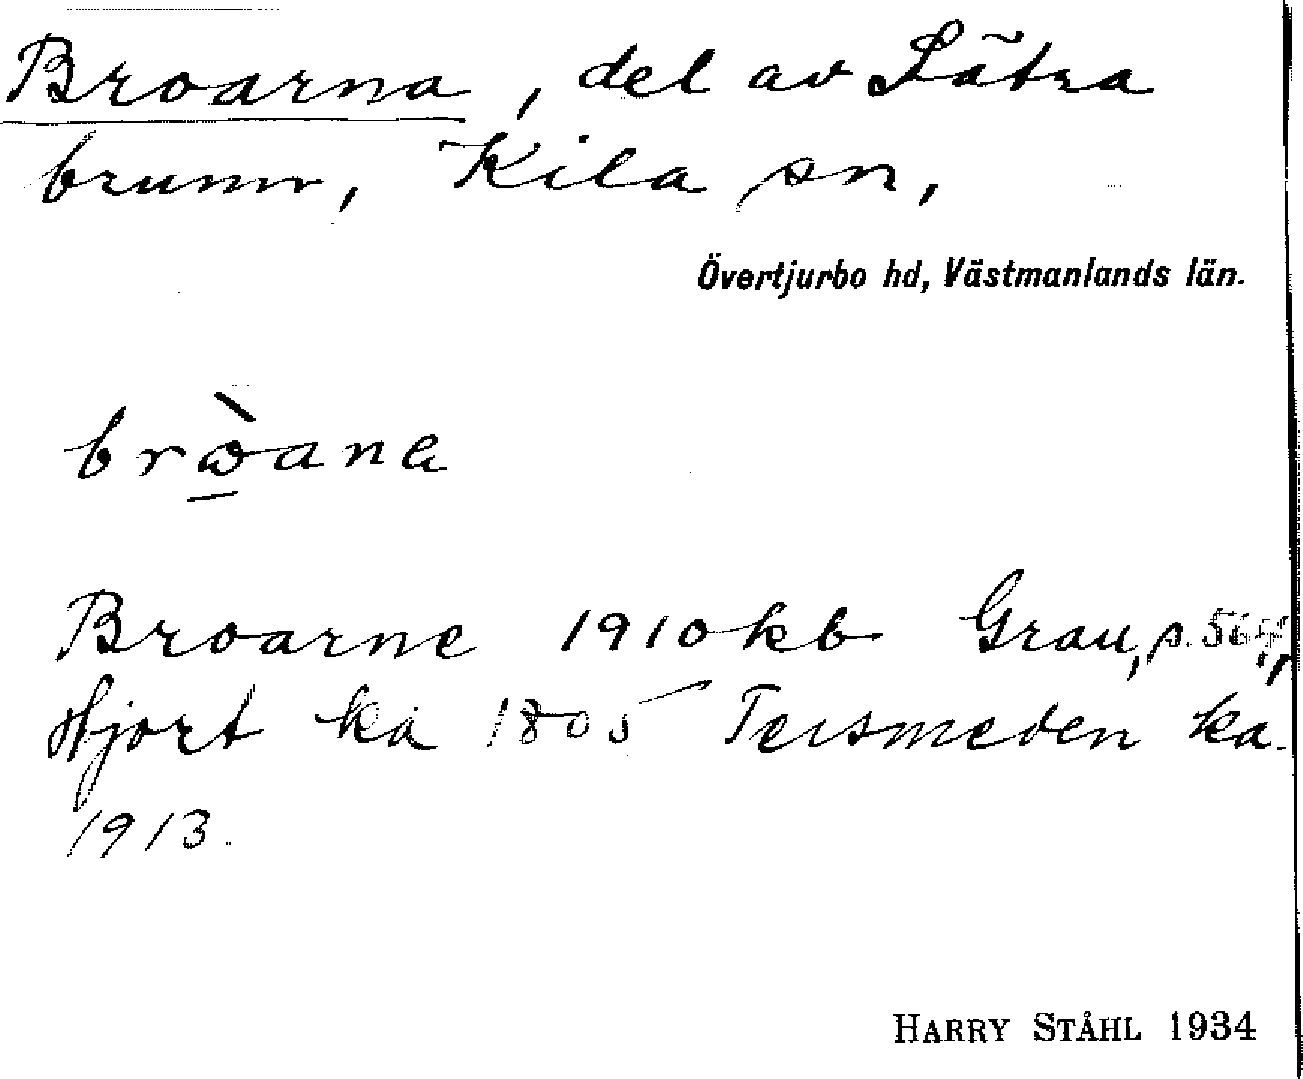 Broarna, del av Sätra
brunn, Kila sn,
Övertjurbo hd, Västmanlands län.
bròana
Broarne 1910 kb Grau, s.
Hjort ka 1805 Tersmeden ka
1913.
HARRY STÅHL 1934